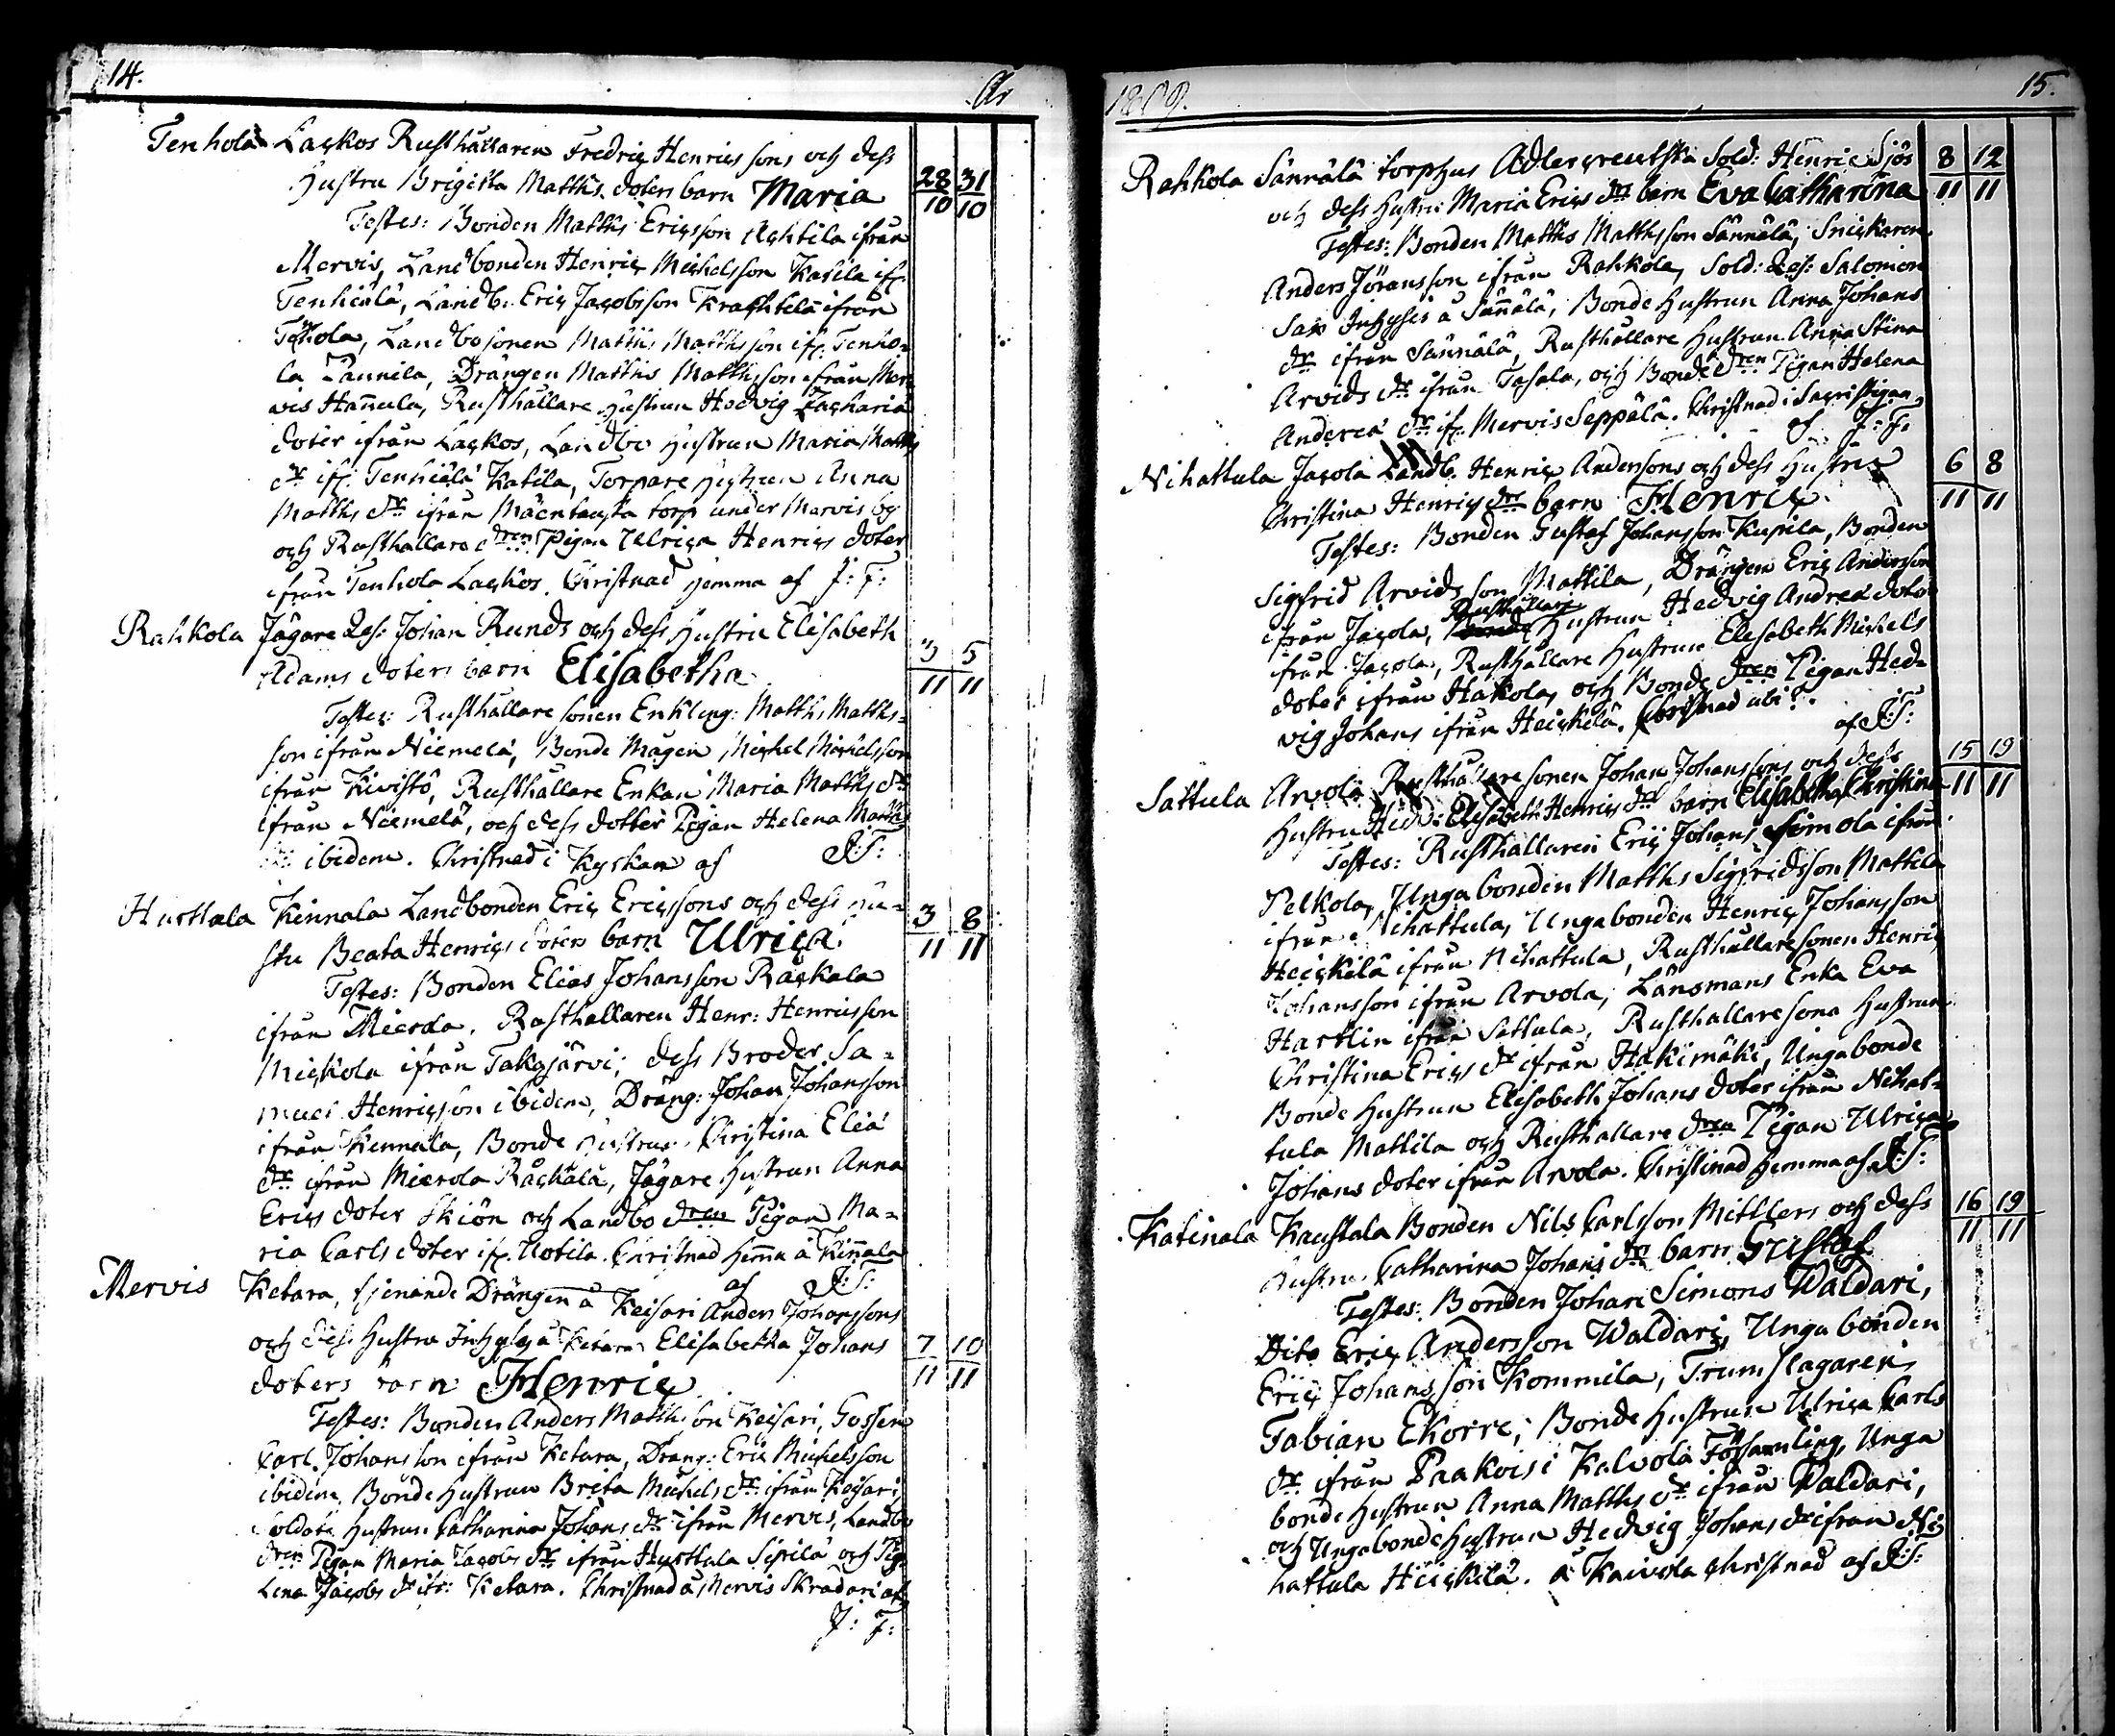 14.
År
Tenhola Lackos Rusthållaren Fredric Henrics sons och dess
28 31
Hustru Brigitta Matths doters barn Maria
10 10
Testes: Bonden Matths Ericsson Achtila ifrån
Mervis, Landbonden Henric Michelsson Katila if:
Tenhiälä, Landb. Eric Jacobsson Krachtila ifrån
Landbosonen Matths Matthsson if: Tenho=
la Paunila, Drängen Matths Matthsson ifrån Mer=
vis Hannula, Rusthållare Hustrun Hedvig Zachariæ
doter ifrån Lackos, Landbo Hustrun Maria Matths
dr if: Tenhiälä Katila, Torpare Hustrun Anna
Matths dr ifrån torp under Mervis by
och Rusthållare dren Pigan Ulrica Henrics doter
ifrån Tenhola Lackos. Christnad hemma af J: F:
Rahkola Jägare Res: Johan Runds och dess Hustru Elisabeth
3 5
Adams doters barn Elisabetha
11 11
Testes: Rusthållare sonen Enkling: Matths Matths=
son ifrån Niemelä, Bonde Mågen Michel Michelsson
ifrån Kivistö, Rusthållare Enkan Maria Matths dr
ifrån Niemelä, och dess dotter Pigan Helena Matths
ibidem. Christnad i Kyrkan af J:F:
Hurttala Kinnala Landbonden Eric Ericssons och dess Hu=
3 8
stru Beata Henrics doters barn Ulrica.
11 11
Testes: Bonden Elias Johansson Räckälä
ifrån Mierola. Rusthållaren Henr: Henricsson
Mickola ifrån Takajärvi; dess Broder Sa=
muel Henricsson ibidem, Dräng: Johan Johansson
ifrån Kinnala, Bonde Hustrun Christina Eliæ
dr ifrån Mierola Räckälä, Jägare Hustrun Anna
Erics doter Skiön och Landbo dren Pigan Ma=
ria Carls doter if: Uotila. Christnad hemma å Kinnala
af J:F:
Mervis Ketara, tjenande Drängen å Keisari Anders Johanssons
och dess Hustru Inhyses å Ketara Elisabetha Johans
7 10
doters barn Henric
11 11
Testes: Bonden Anders Matthsson Keisari, Gossen
Carl Johansson ifrån Ketara, Dräng: Eric Michelsson
ibidem, Bonde Hustrun Brita Michels dr ifrån Keisari,
Soldate Hustrun Catharina Johans dr ifrån Mervis, Landbo
dren Pigan Maria Jacobs dr ifrån Hurttala Sipilä och Pig:
Lena Jacobs dr ifr: Ketara. Christnad å Mervis Skrädari af
J: F:
1809.
15.
Rahkola Sännälä torphus Adlercreutska Sold: Henric Sjös
8 12
och dess Hustru Maria Erics drs barn Eva Catharina
11 11
Testes: Bonden Matths Matthsson Sännälä, Snickaren
Anders Jöransson ifrån Rahkola, Sold: Res: Salomon
Sax Inhyses å Sännälä, Bonde Hustrun Anna Johans
dr ifrån Sännälä, Rusthållare Hustrun Anna Stina
Arvids dr ifrån Tasala, och Bonde dren Pigan Helena
Andreæ dr if: Mervis Seppälä. Christnad i Sacristigan
af J: F:
Nihattula Jacola Landb. Henric Anderssons och dess Hustru
6 8
Christina Henrics drs barn Henric
11 11
Testes: Bonden Gustaf Johansson Kurila, Bonden
Sigfrid Arvidsson Mattila, Drängen Eric Andersson
ifrån Jacola, Rusthållare Hustrun Hedvig Andreæ doter
ifrån Jacola, Rusthållare Hustrun Elisabeth Michels
doter ifrån Hakola, och Bonde dren Pigan Hed=
vig Johans ifrån Heickilä. Christnad
af J:F:
Sattula Arvola Rusthållare sonen Johan Johanssons och dess
15 19
Hustru Elisabeth Henrics drs barn Elisabetha Christina
11 11
Testes: Rusthållaren Eric Johans Simola ifrån
Pelkola, Unga bonden Matths Sigfridsson Mattila
ifrån Nihattula, Unga bonden Henric Johansson
Heickilä ifrån Nihattula, Rusthållaresonen Henric
Johansson ifrån Arvola, Länsmans Enka Eva
Hartlin ifrån Sattula, Rusthållaresona Hustrun
Christina Erics dr ifrån Hakimäki, Unga bonde
Bonde Hustrun Elisabeth Johans doter ifrån Nihat=
tula Mattila och Rusthållare dren Pigan Ulrica
Johans doter ifrån Arvola. Christnad hemma af J:F:
Katinala Kaustala Bonden Nils Carlsson Mittlers och dess
16 19
Hustru Catharina Johans drs barn Gustaf
11 11
Testes: Bonden Johan Simons Waldari,
Dito Eric Andersson Waldari, Unga bonden
Eric Johansson Kommila, Trumslagaren
Fabian Ekorre, Bonde Hustrun Ulrica Carls
dr ifrån Paakois i Kalvola Församling, Unga
bonde Hustrun Anna Matths dr ifrån Waldari,
och Unga bonde Hustrun Hedvig Johans dr ifrån Ni
hattula Heickilä. å Kaivola christnad af J:F: